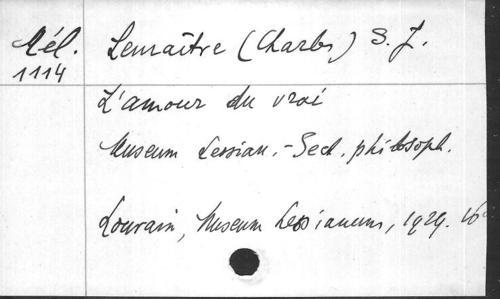 Rél. Lemaître (Charles) S. J.
1114
L'amour du vrai
Museum Lessian. - Sect. philosoph.
Louvain, Museum Lessianum, 1929. 16°